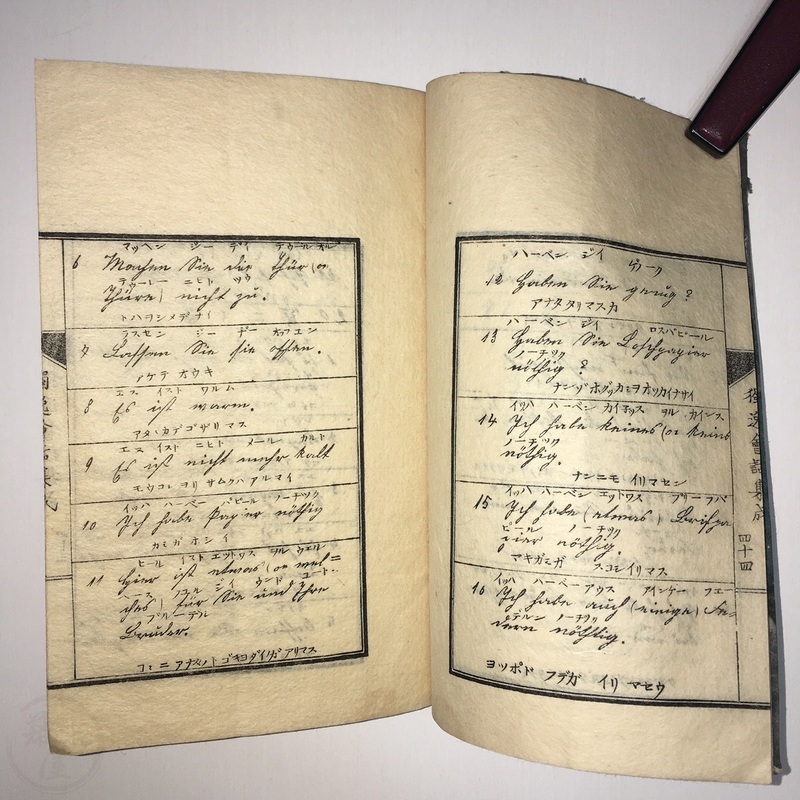 マッヘン ジー デイ テウール オル
6 Machen Sie die Thür (or
テウーレー ニヒト ツウ
Thüre) nicht zu.
トハヲシメデナイ
ラスセン ジー ヂー オッフエン
7 Lassen Sie sie offen.
アケテ オウキ
エス イスト ワルム
8 Es ist warm.
アタヽカデゴザリマス
エス イスト ニヒト メール カルト
9 Es ist nicht mehr kalt
モウコレヨリ サムクハアルマイ
イッハ ハーベー パピール ノーチック
10 Ich habe Papier nöthig
カミガオシイ
ヒール イスト エツトワス ヲル ウエル
11 Hier ist etwas (or wel=
ches) für Sie und Ihre
ブリーデル
Brüder.
ハーベン ジイ
12 Haben Sie genug?
アナタタリマスカ
ハーベン ジイ ロスパピール
13 Haben Sie Löschpapier
ノーチック
nöthig?
イッハ ハーベン カイネッス ヲル カインス
14 Ich habe keines (or keins
ノーチック
nöthig.
ナンニモ イリマセン
イッハ ハーベン エッドワス ブリーフパ
15 Ich habe (etwas) Briefpa
ピール ノーチック
pier nöthig.
マキガミガ スコシイリマス
イッハ ハーベー アウス アインケー フエー
16 Ich habe auch (einige) Fe-
デルン ノーチック
dern nöthig.
ヨッポド フデガ イリ マセウ
獨逸會話集成
四十四